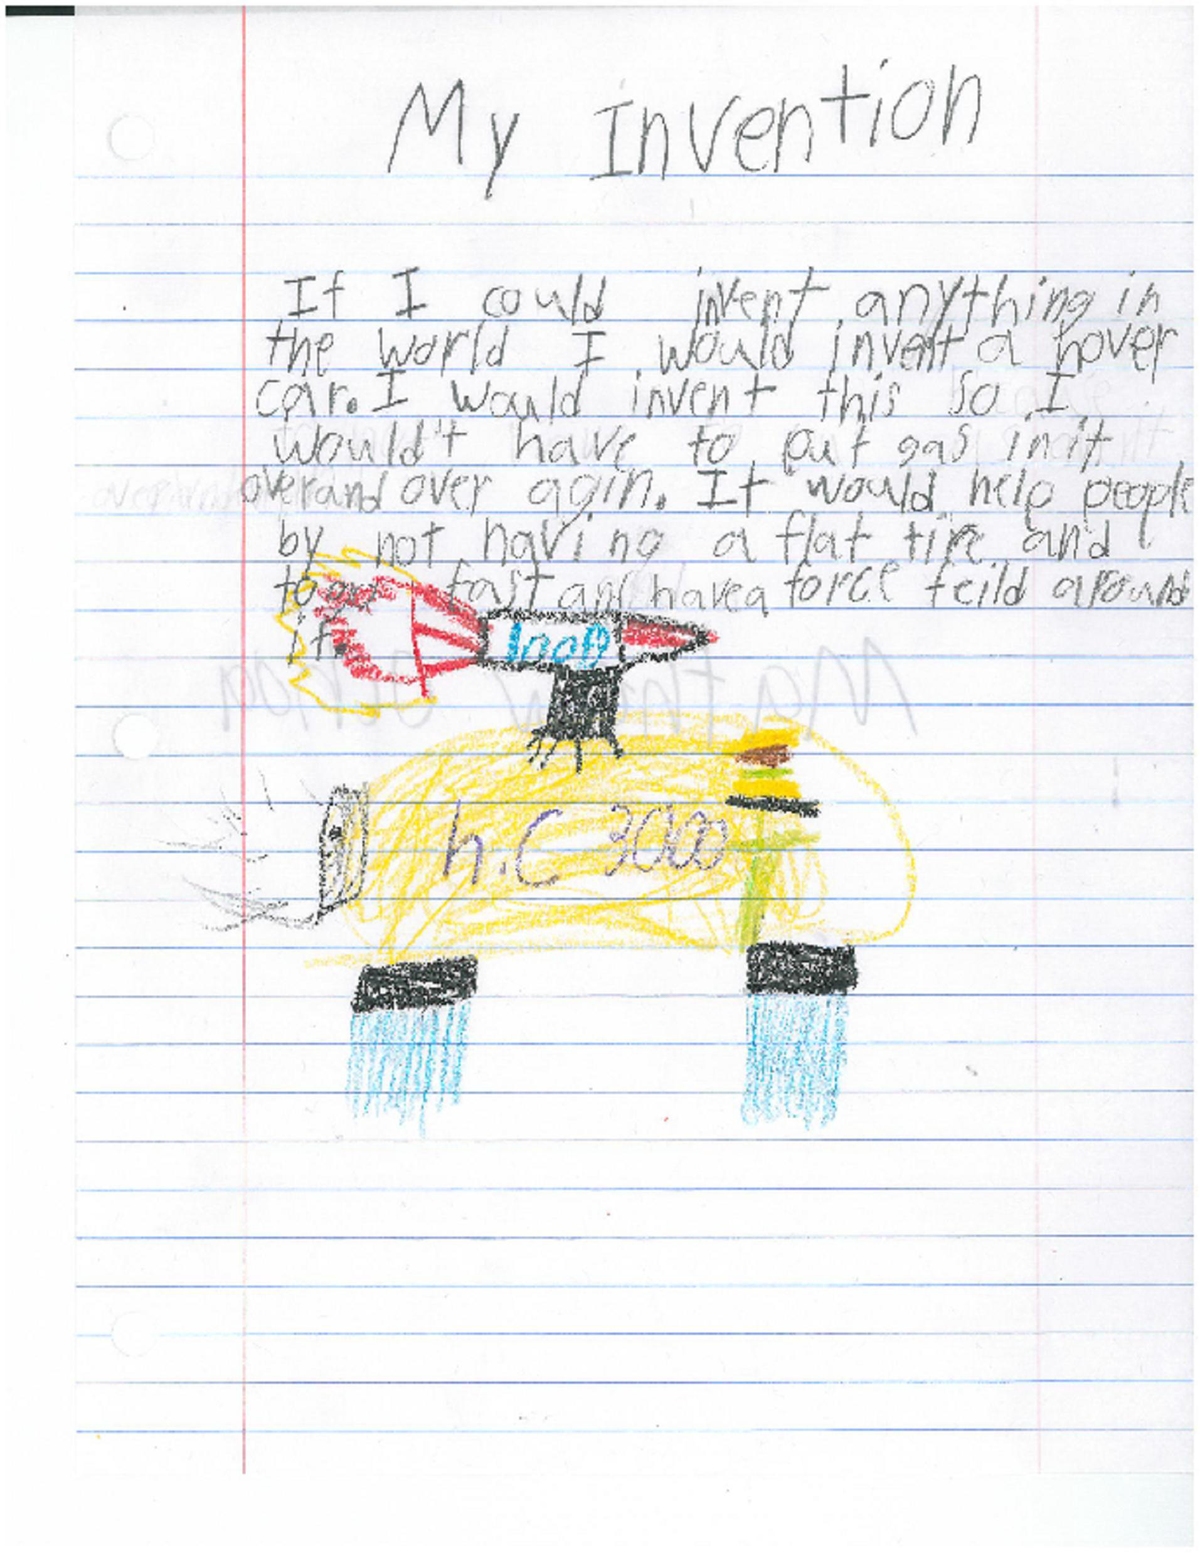 My Invention
If I could invent anything in
the world I would invent a hover
car. I would invent this so I
wouldn't have to put gas in it
over and over agin. It would help people
by not having a flat tire and
to go fast and have a force feild around
it.
h.C 3000